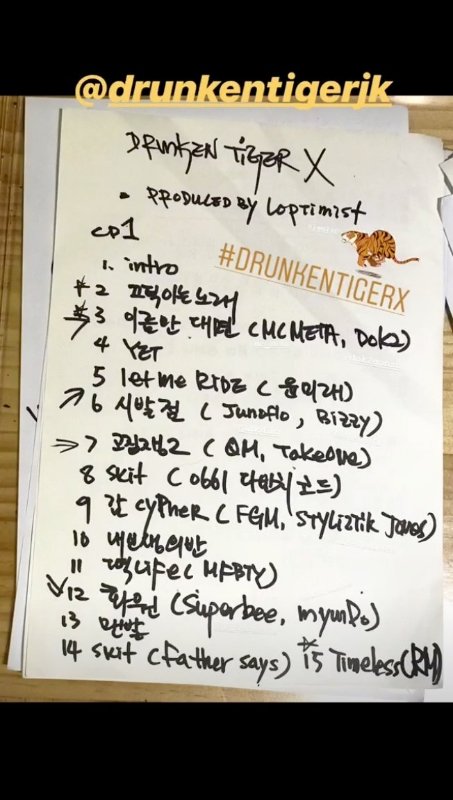 @drunkentigerjk
DRUNKEN TIGER X
• PRODUCED BY Loptimist
CD1
#DRUNKENTIGERX
1. intro
* 2 끄덕이는노래
* 3 이름만 대면 (MC META, Dok2)
4 YET
5 let me RIDE (윤미래)
6 시발점 (Junoflo, Bizzy)
7 고집쟁2 (QM, Takeone)
8 skit (0661 코드)
9 cypher (FGM, Styliztik Jones)
10 내인생의반
11 Life (MFBTY)
12 화원 (Superbee, myunDo)
13 맨발
14 skit (father says) * 15 Timeless (RM)